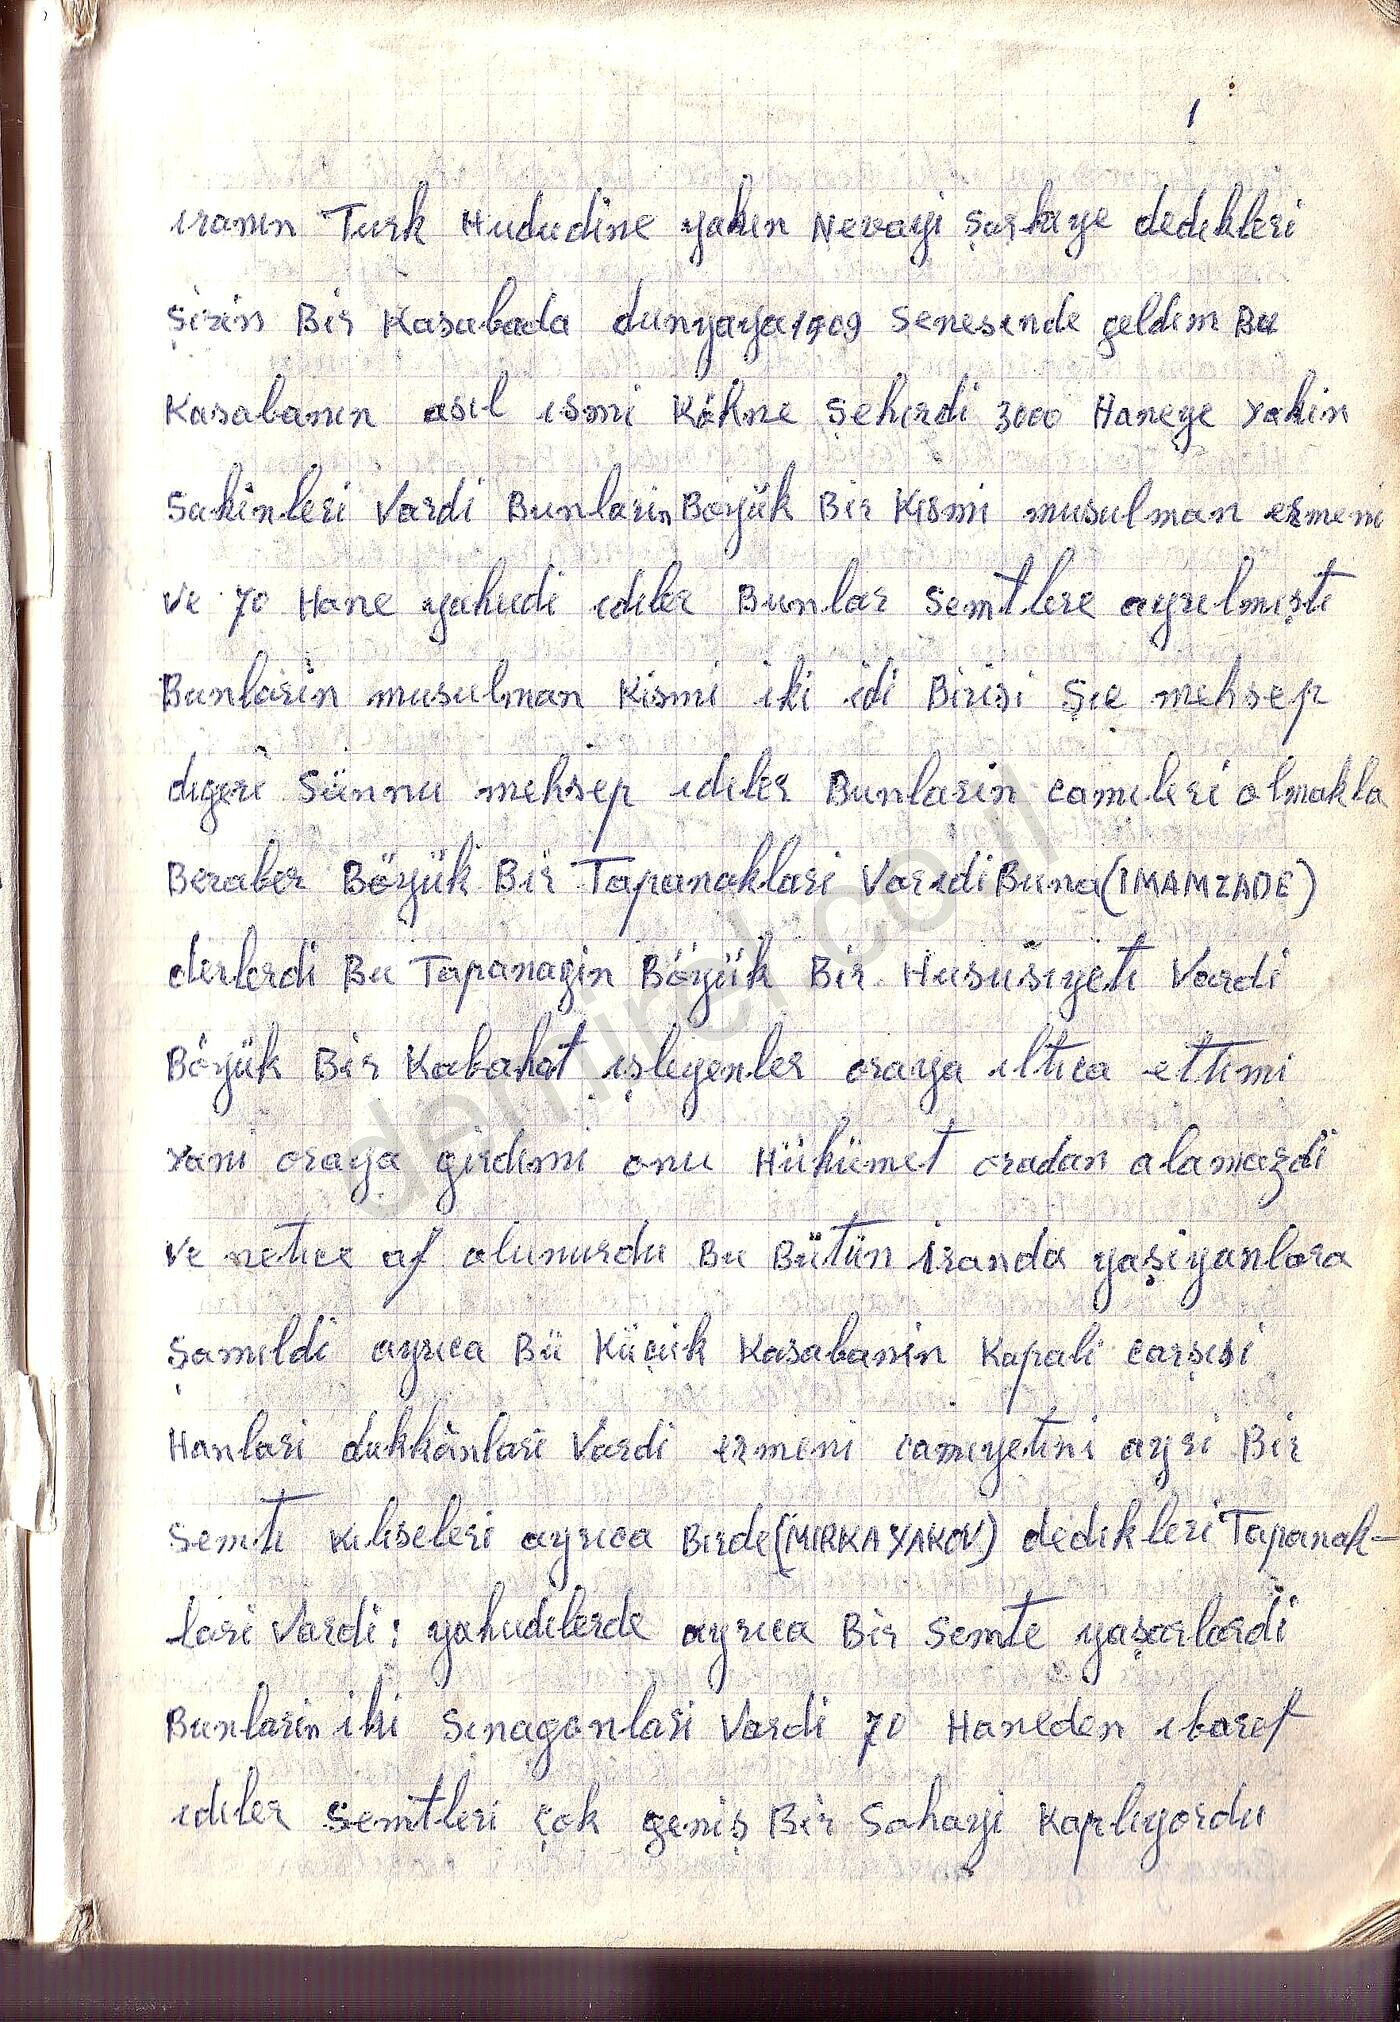 1
ıranın Turk Hududine yakın Nevayi Şarkıye dedıkleri
Şirin Bir Kasabada dunyaya 1909 senesınde geldım Bu
Kasabanın asıl ısmi Köhne Şehırdi 3000 Haneye yakin
Sakinleri Vardi Bunlarin Böyük Bir Kismi musulman ermeni
ve 70 Hane yahudi ıdıler Bunlar semtlere ayrılmıştı
Bunlarin musulman Kismi iki idi Birisi Şıe mehsep
dıgeri Sünnu mehsep ıdıler Bunlarin camıleri olmakla
Beraber Böyük Bir Tapanaklari Varıdi Buna (IMAMZADE)
derlerdi Bu Tapanagin Böyük Bir Hususıyetı Vardi
Böyük Bir Kabahat ışleyenler oraya ıltıca ettımi
yani oraya girdımi onu Hükümet oradan alamazdi
ve netıce af olunurdu Bu Bütün iranda yaşiyanlara
Şamıldi ayrıca Bü Küçuk Kasabanin Kapali carşısi
Hanlari dukkânlari Vardi ermeni camıyetıni ayri Bir
Semtı Kılıseleri ayrıca Birde (MIRKA YAKOV) dedıkleri Tapanak-
lari Vardi: yahudılerde ayrıca Bir Semte yaşarlardi
Bunlarin iki Sınagonlari Vardi 70 Haneden ıbaret
ıdıler Semtleri çok geniş Bir Sahayi Kaplıyordu
demirel.co.il